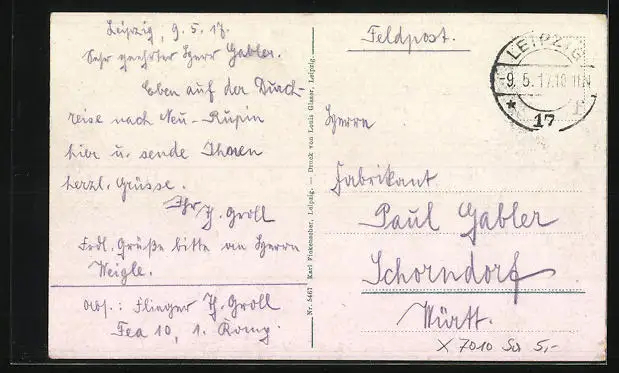 Leipzig, 9. 5. 17.
Sehr geehrter Herr Gabler.
Eben auf der Durch-
reise nach Neu-Rupin
hier u. sende Ihnen
herzl. Grüsse.
Ihr Th. Groll
Frdl. Grüße bitte an Herrn
Weigle.
Abs.: Flieger Th. Groll
Fea 10, 1. Komp.
Nr. 5467 Karl Finkeneber, Leipzig. — Druck von Louis Glaser, Leipzig.
Feldpost.
LEIPZIG
-9. 5. 17. 10-11 N
* 17
Herrn
Fabrikant
Paul Gabler
Schorndorf
Württ.
X 7010 5,-